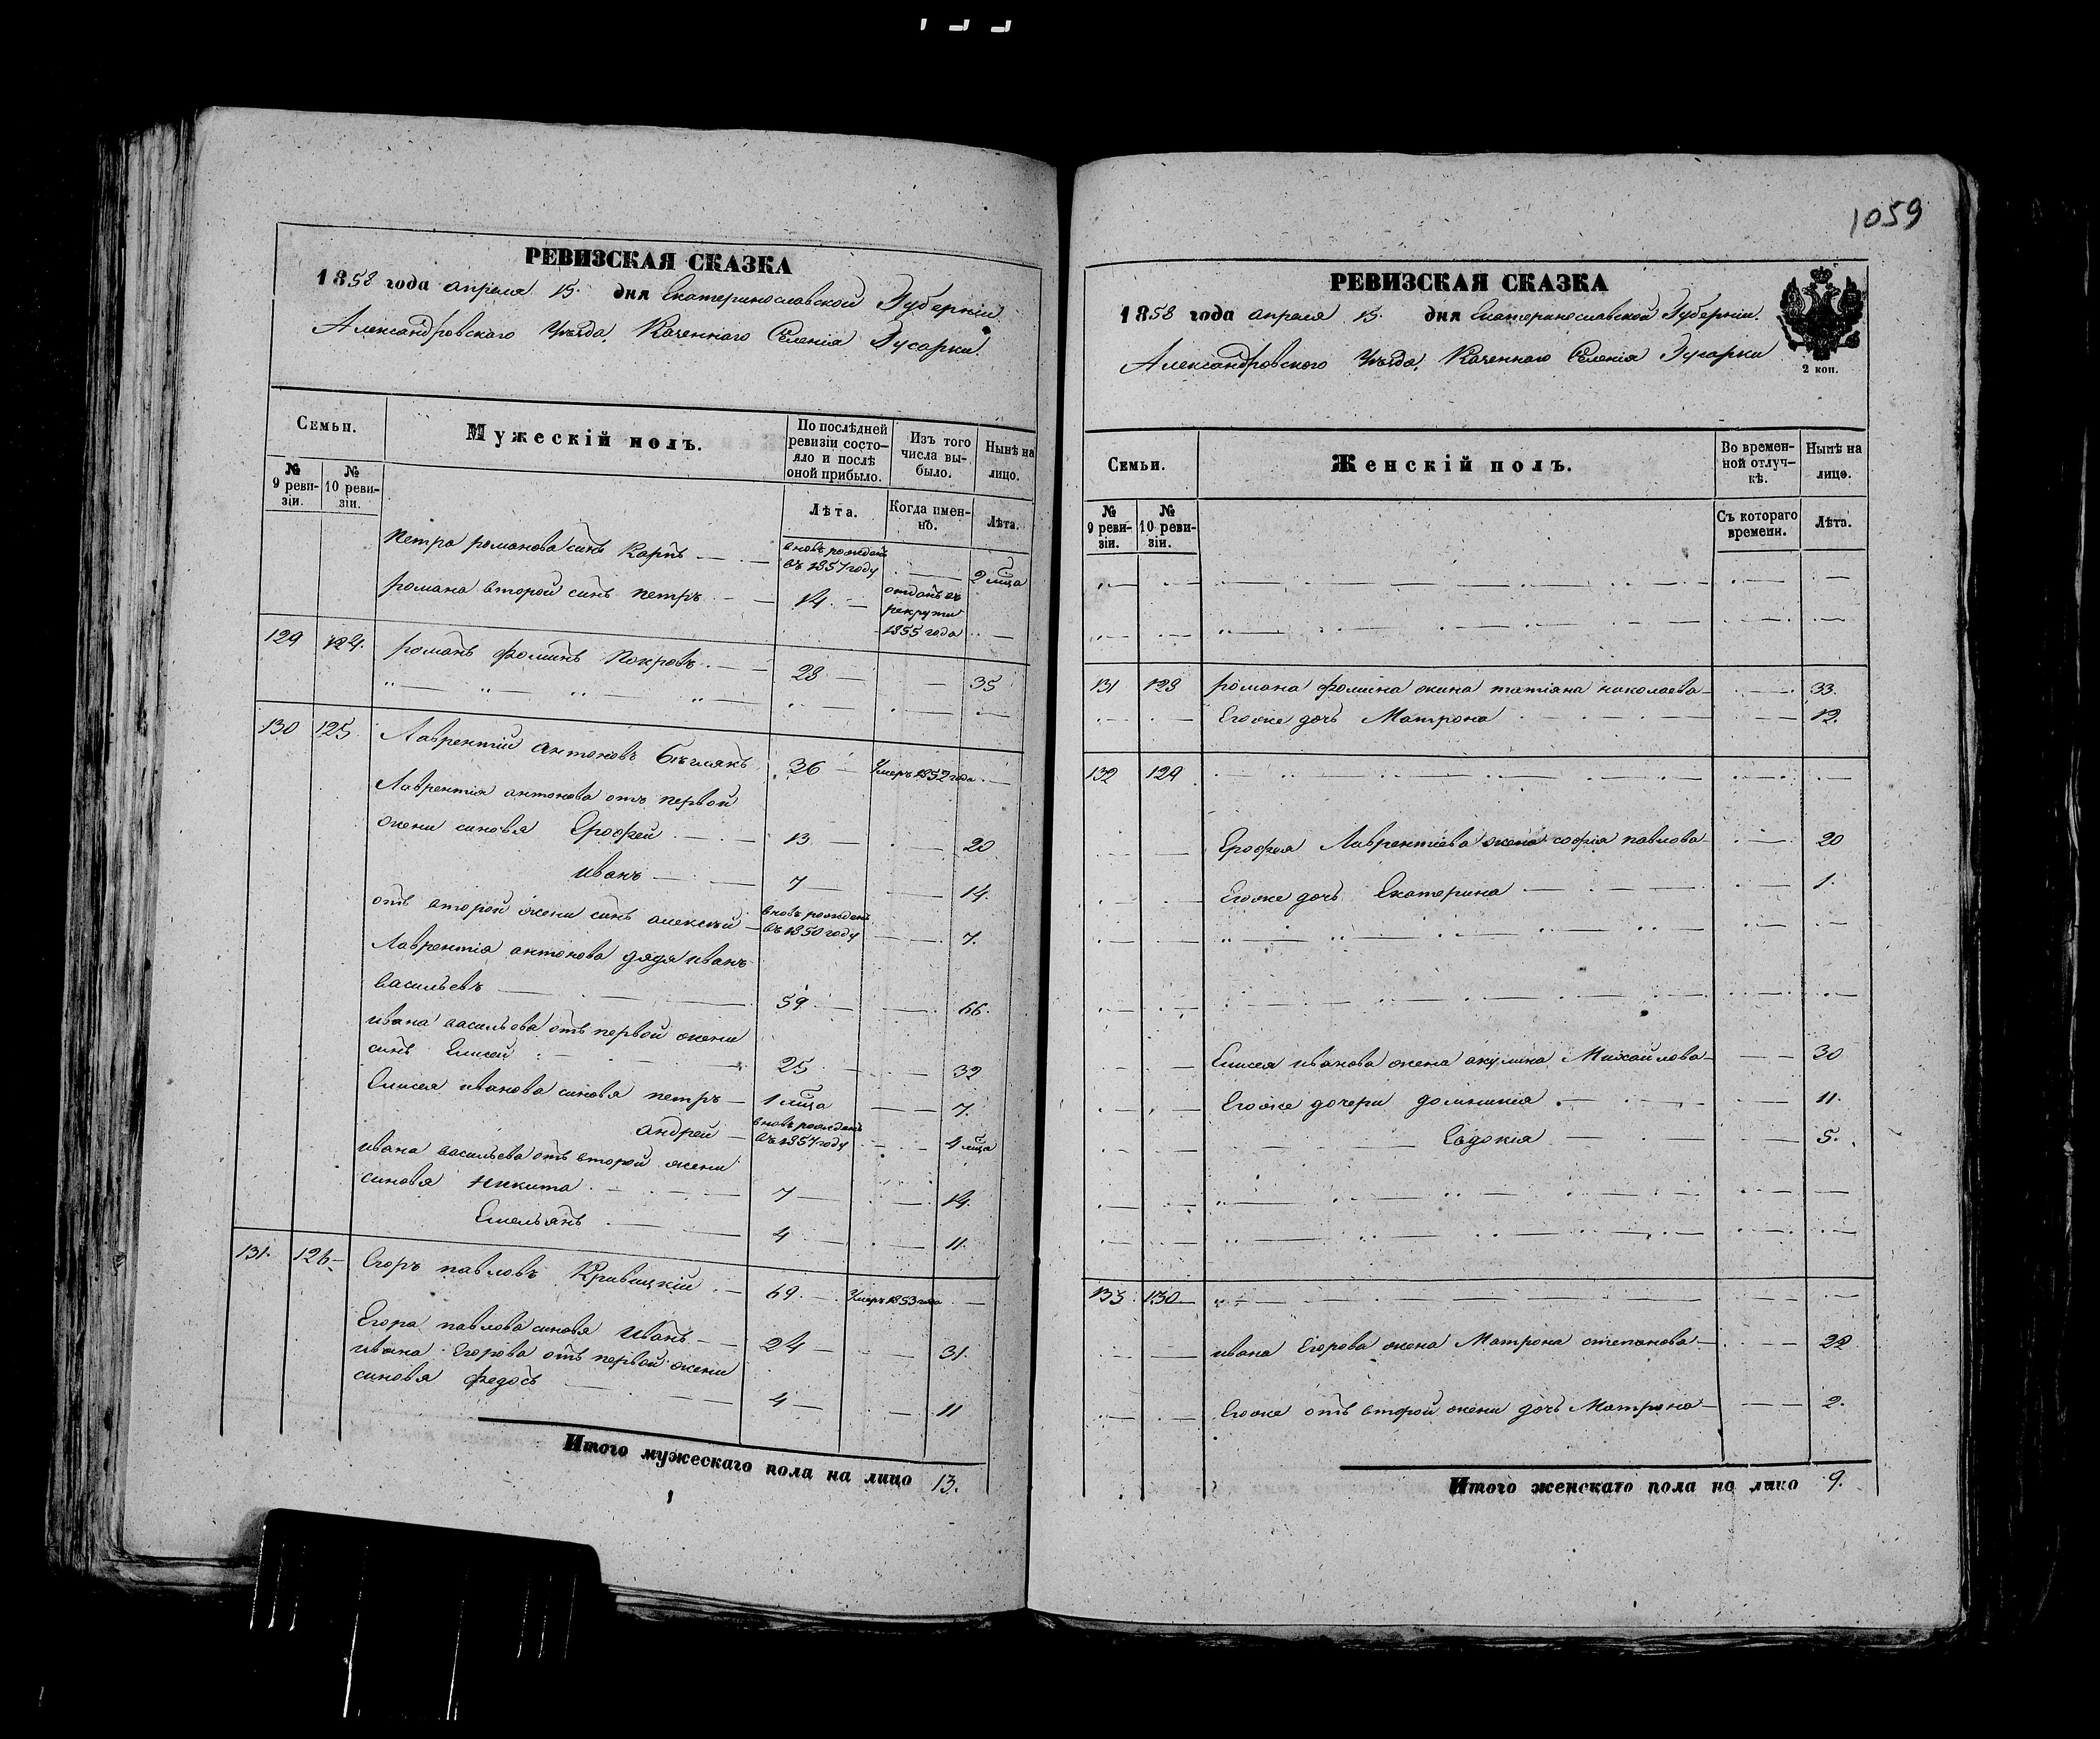 1059
РЕВИЗСКАЯ СКАЗКА
1858 года апреля 15. дня Екатеринославской Губернии.
Александровскаго Уѣзда, Казеннаго Селенія Гусарки.
Семьи.
Мужескій полъ.
По послѣдней ревизіи состо-
яло и послѣ оной прибыло.
Изъ того числа вы-
было.
Нынѣ на лицо.
№ 9 реви-
зіи.
№ 10 реви-
зіи.
Лѣта.
Когда имен-
но.
Лѣта.
Петра романова синъ Карпъ — вновь рожденъ въ 1857 году — 2 м̃ца
романа второй синъ петръ — 14. — отданъ въ рекрути 1855 года —
129 124. романъ Фоминъ — 28 — 35
130 125 Лаврентий антоновъ — 36 — Умеръ 1852 года —
Лаврентія антонова отъ первой
жени синовья Ерофей — 13 — 20
иванъ — 7 — 14.
отъ второй жени синъ алексѣй — вновь рожденъ въ 1850 году — 7.
Лаврентія антонова дядя иванъ
васильевъ — 59 — 66.
ивана васильова отъ первой жени
синъ Елисей — 25 — 32
Елисея иванова синовя петръ — 1 м̃ца — 7.
андрей — вновь рожденъ въ 1857 году — 4 м̃ца
ивана васильева отъ второй жени
синовя Никита — 7 — 14.
Емельянъ — 4 — 11.
131. 126 Егоръ павловъ Кривицкій — 69. — Умеръ 1853 года —
Егора павлова синовя иванъ — 24 — 31.
ивана Егорова отъ первой жени
синовя федосъ — 4 — 11
Итого мужескаго пола на лицо 13.
РЕВИЗСКАЯ СКАЗКА
1858 года апреля 15. дня Екатеринославской Губернии.
Александровского Уѣзда, Казеннаго Селенія Гусарки
2 коп.
Семьи.
Женскій полъ.
Во времен-
ной отлуч-
кѣ.
Нынѣ на лицо.
№ 9 реви-
зіи.
№ 10 реви-
зіи.
Съ котораго времени.
Лѣта.
131 128 романа фомина жина татіана николаева — 33.
Егоже дочь Матрона — 12.
132 129
Ерофея Лаврентіева жена софія павлова — 20
Егоже дочь Екатерина — 1.
Елисея иванова жена акулина Михайлова — 30
Егоже дочери домникія — 11.
Евдокія — 5.
133 130
ивана Егорова жена Матрона степанова — 22
Егоже отъ второй жени дочь Матрона — 2.
Итого женскаго пола на лицо 9.